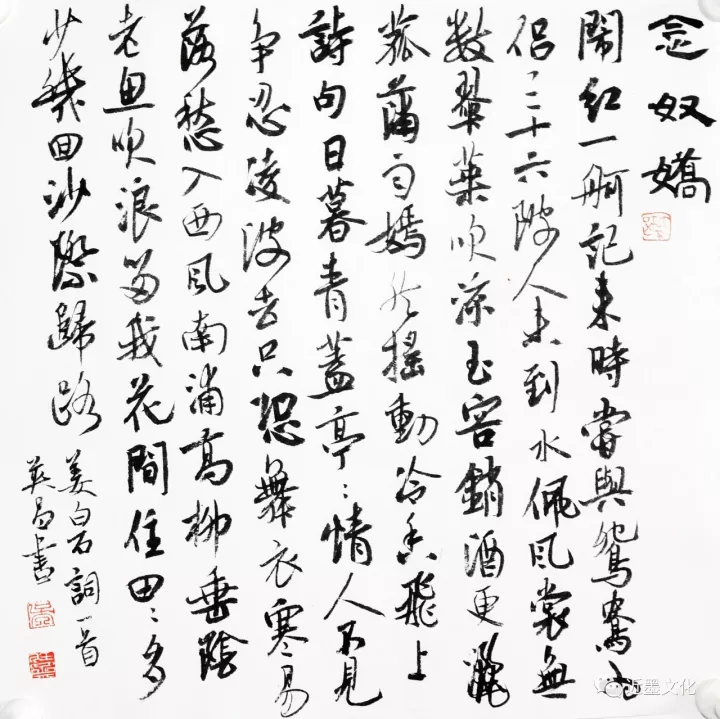 念奴嬌
鬧紅一舸記來時嘗與鴛鴦為
侶三十六陂人未到水佩風裳無
数翠葉吹涼玉容銷酒更灑
菰蒲雨嫣然搖動冷香飛上
詩句日暮青蓋亭〻情人不見
争忍凌波去只恐舞衣寒易
落愁入西風南浦高柳垂陰
老魚吹浪留我花間住田〻多
少幾回沙際歸路
姜白石詞一首
英昌書
近墨文化